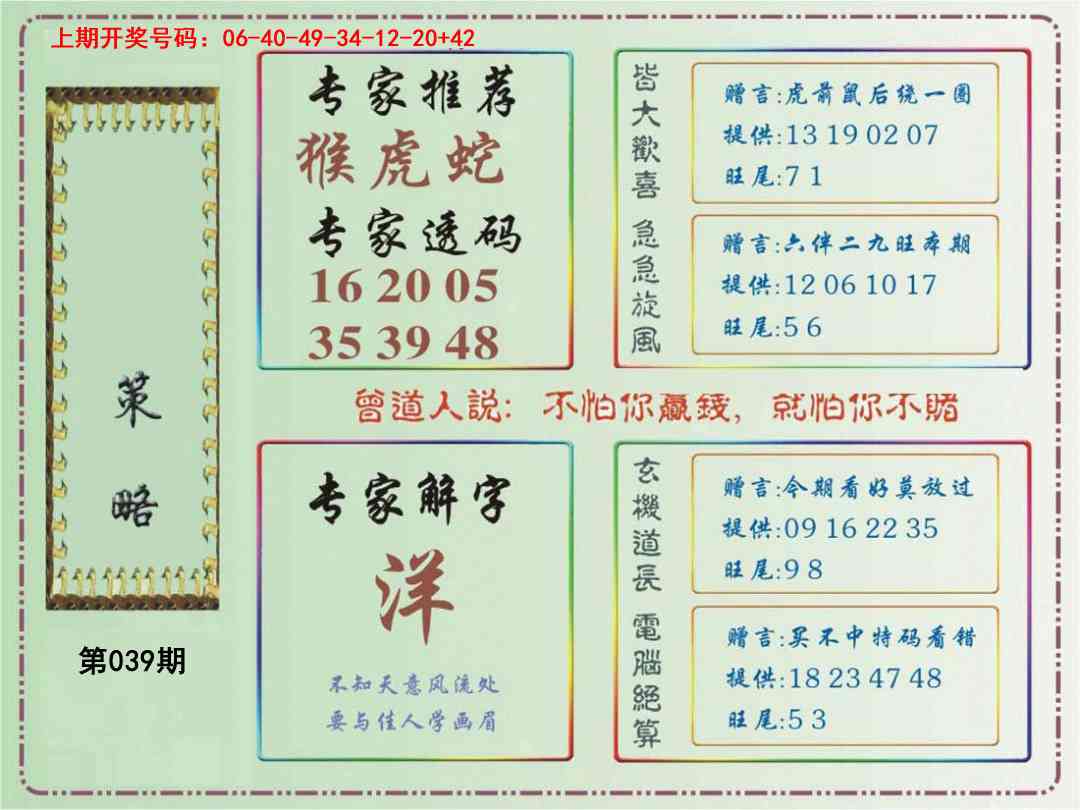 上期开奖号码：06-40-49-34-12-20+42
策略
第039期
专家推荐
猴虎蛇
专家透码
16 20 05
35 39 48
皆大歡喜
赠言:虎前鼠后绕一圈
提供:13 19 02 07
旺尾:7 1
急急旋風
赠言:六伴二九旺本期
提供:12 06 10 17
旺尾:5 6
曾道人説：不怕你贏錢，就怕你不賭
专家解字
洋
不知天意风流处
要与佳人学画眉
玄機道長
赠言:今期看好莫放过
提供:09 16 22 35
旺尾:9 8
電腦絕算
赠言:买不中特码看错
提供:18 23 47 48
旺尾:5 3